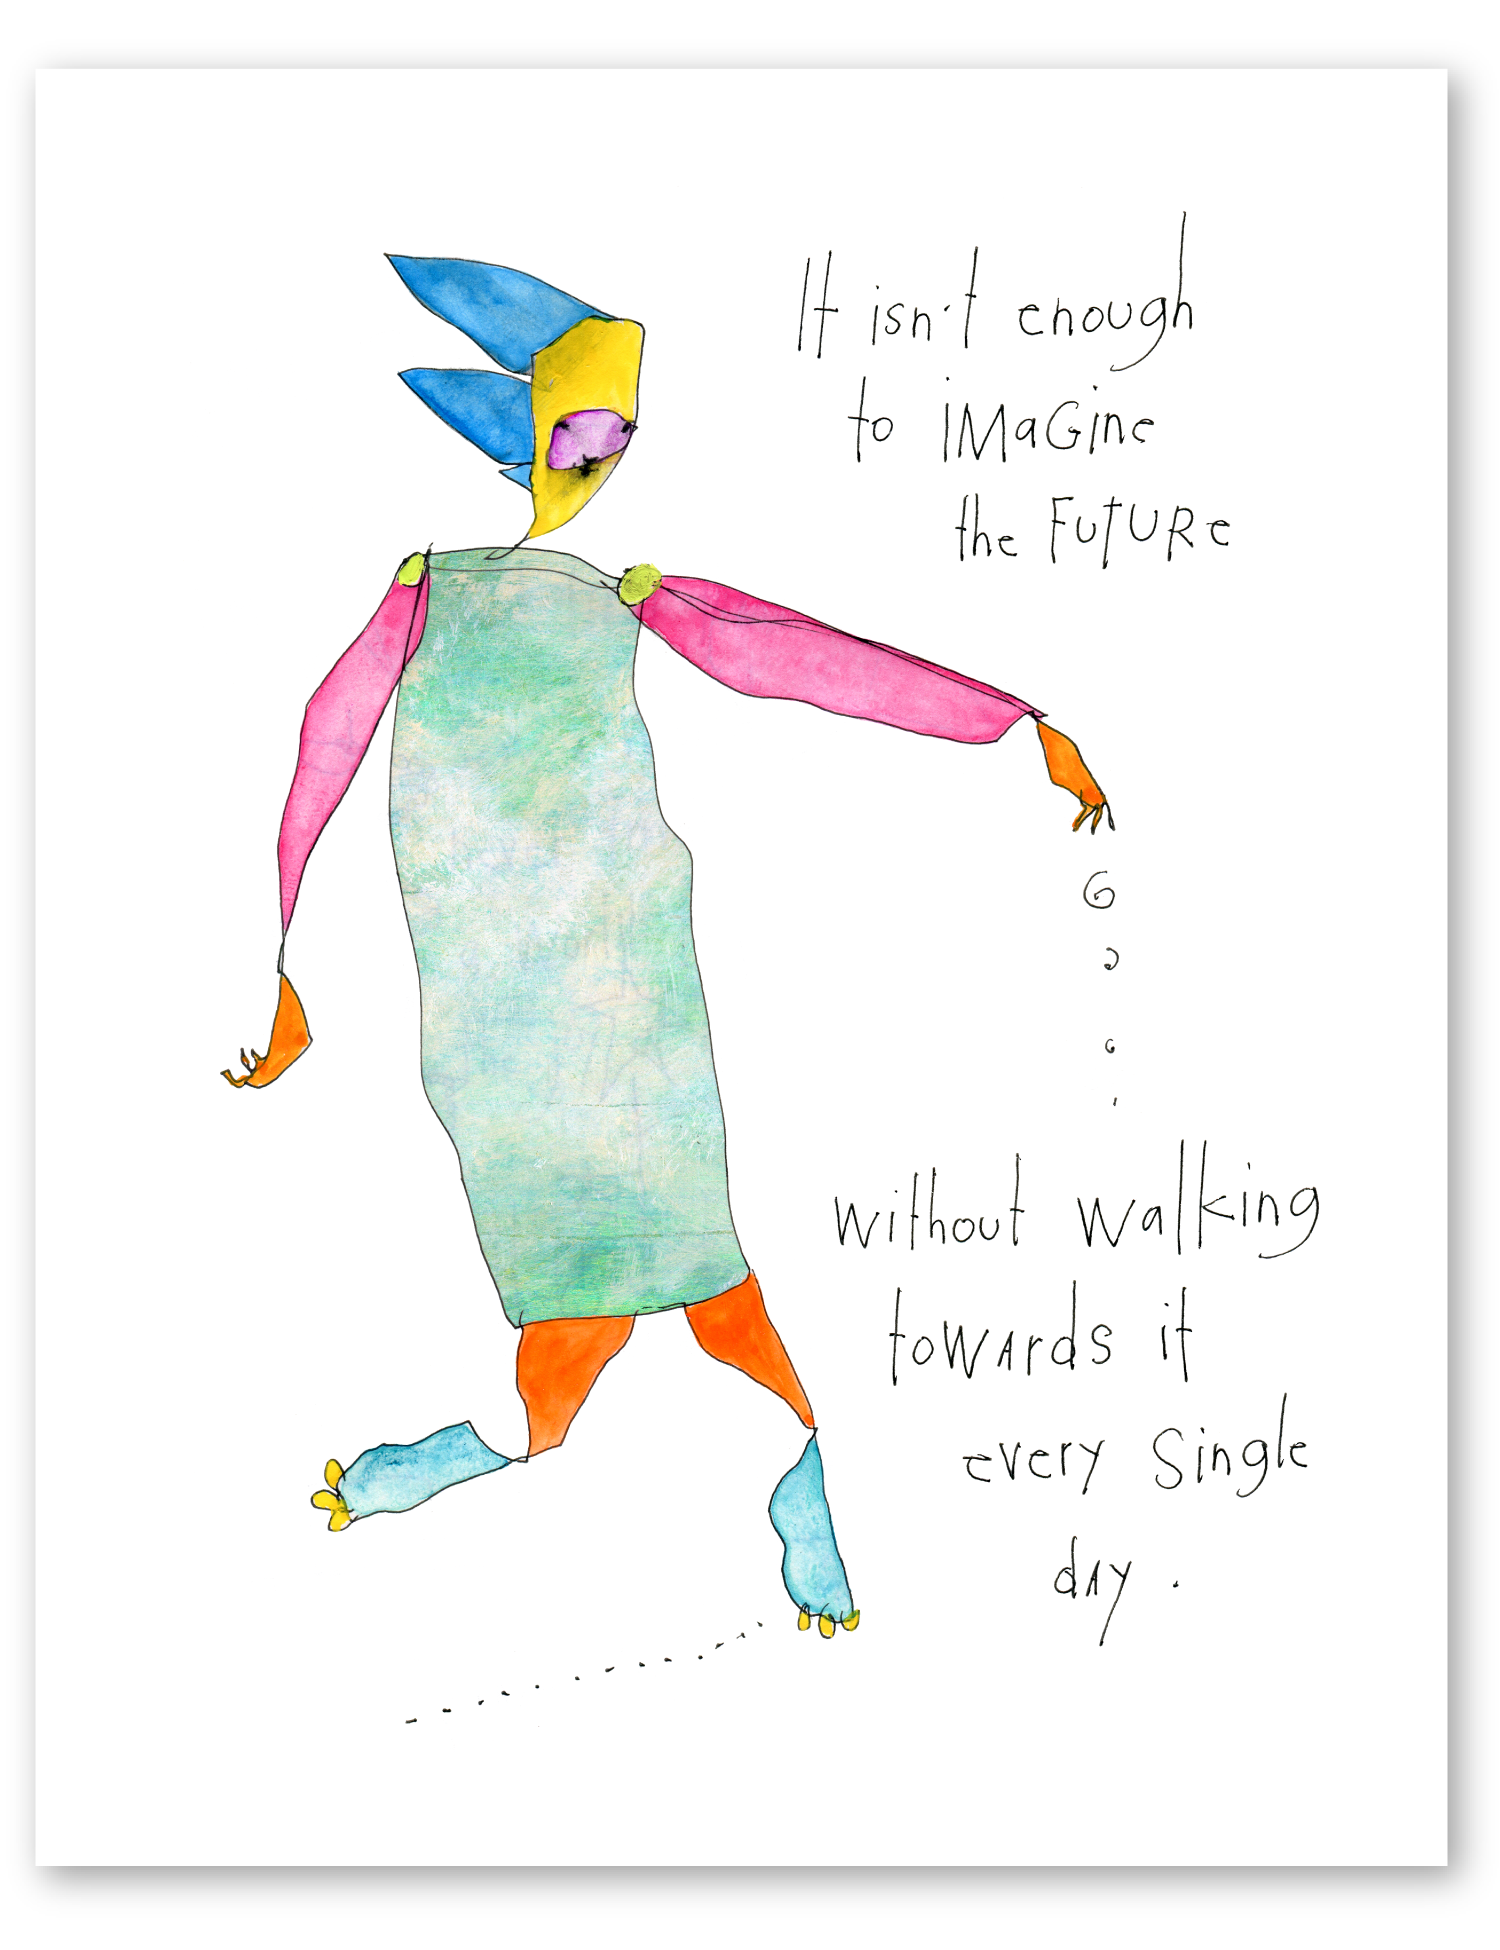 It isn't enough
to iMaGine
the FuTURe
without walking
towards it
every single
day.